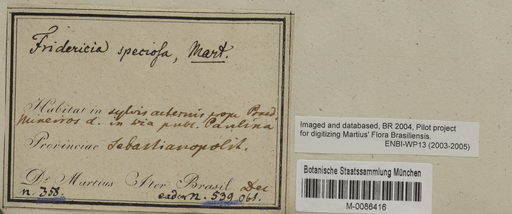 Fridericia speciosa, Mart.
Habitat in sylvis aeternis prope Praed.
Mineiros d. in via publ. Paulina
Provinciae Sebastianopolit.
Dr. Martius Iter Brasil. Dec
n. 358. eadem n. 539 obs.
Imaged and databased, BR 2004, Pilot project
for digitizing Martius' Flora Brasiliensis.
ENBI-WP13 (2003-2005)
Botanische Staatssammlung München
M-0086416